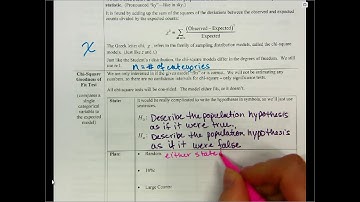 statistic. (Pronounced "ky" - like in sky.)
It is found by adding up the sum of the squares of the deviations between the observed and expected
counts divided by the expected counts:
χ² = Σ (Observed - Expected)² / Expected
The Greek letter chi, χ, refers to the family of sampling distribution models, called the chi-square
models. (Just like z and t.)
χ
Just like the Student's t distribution, the chi-square models differ in the degrees of freedom. We will
n = # of categories
Chi-Square
Goodness of
Fit Test
(compares a
single
categorical
variable to
the expected)
We are not only interested if the given model "fits" or is correct. We will not be estimating any
so there are no confidence intervals for chi-square tests.
All chi-square tests will be one-sided. The model either fits, or it doesn't.
State:
It would be really complicated to write the hypotheses in symbols, so we'll just use
sentences.
H₀: Describe the population hypothesis
as if it were true,
Hₐ: Describe the population hypothesis
as if it were false
Plan:
• Random either state
• 10%
• Large Counts